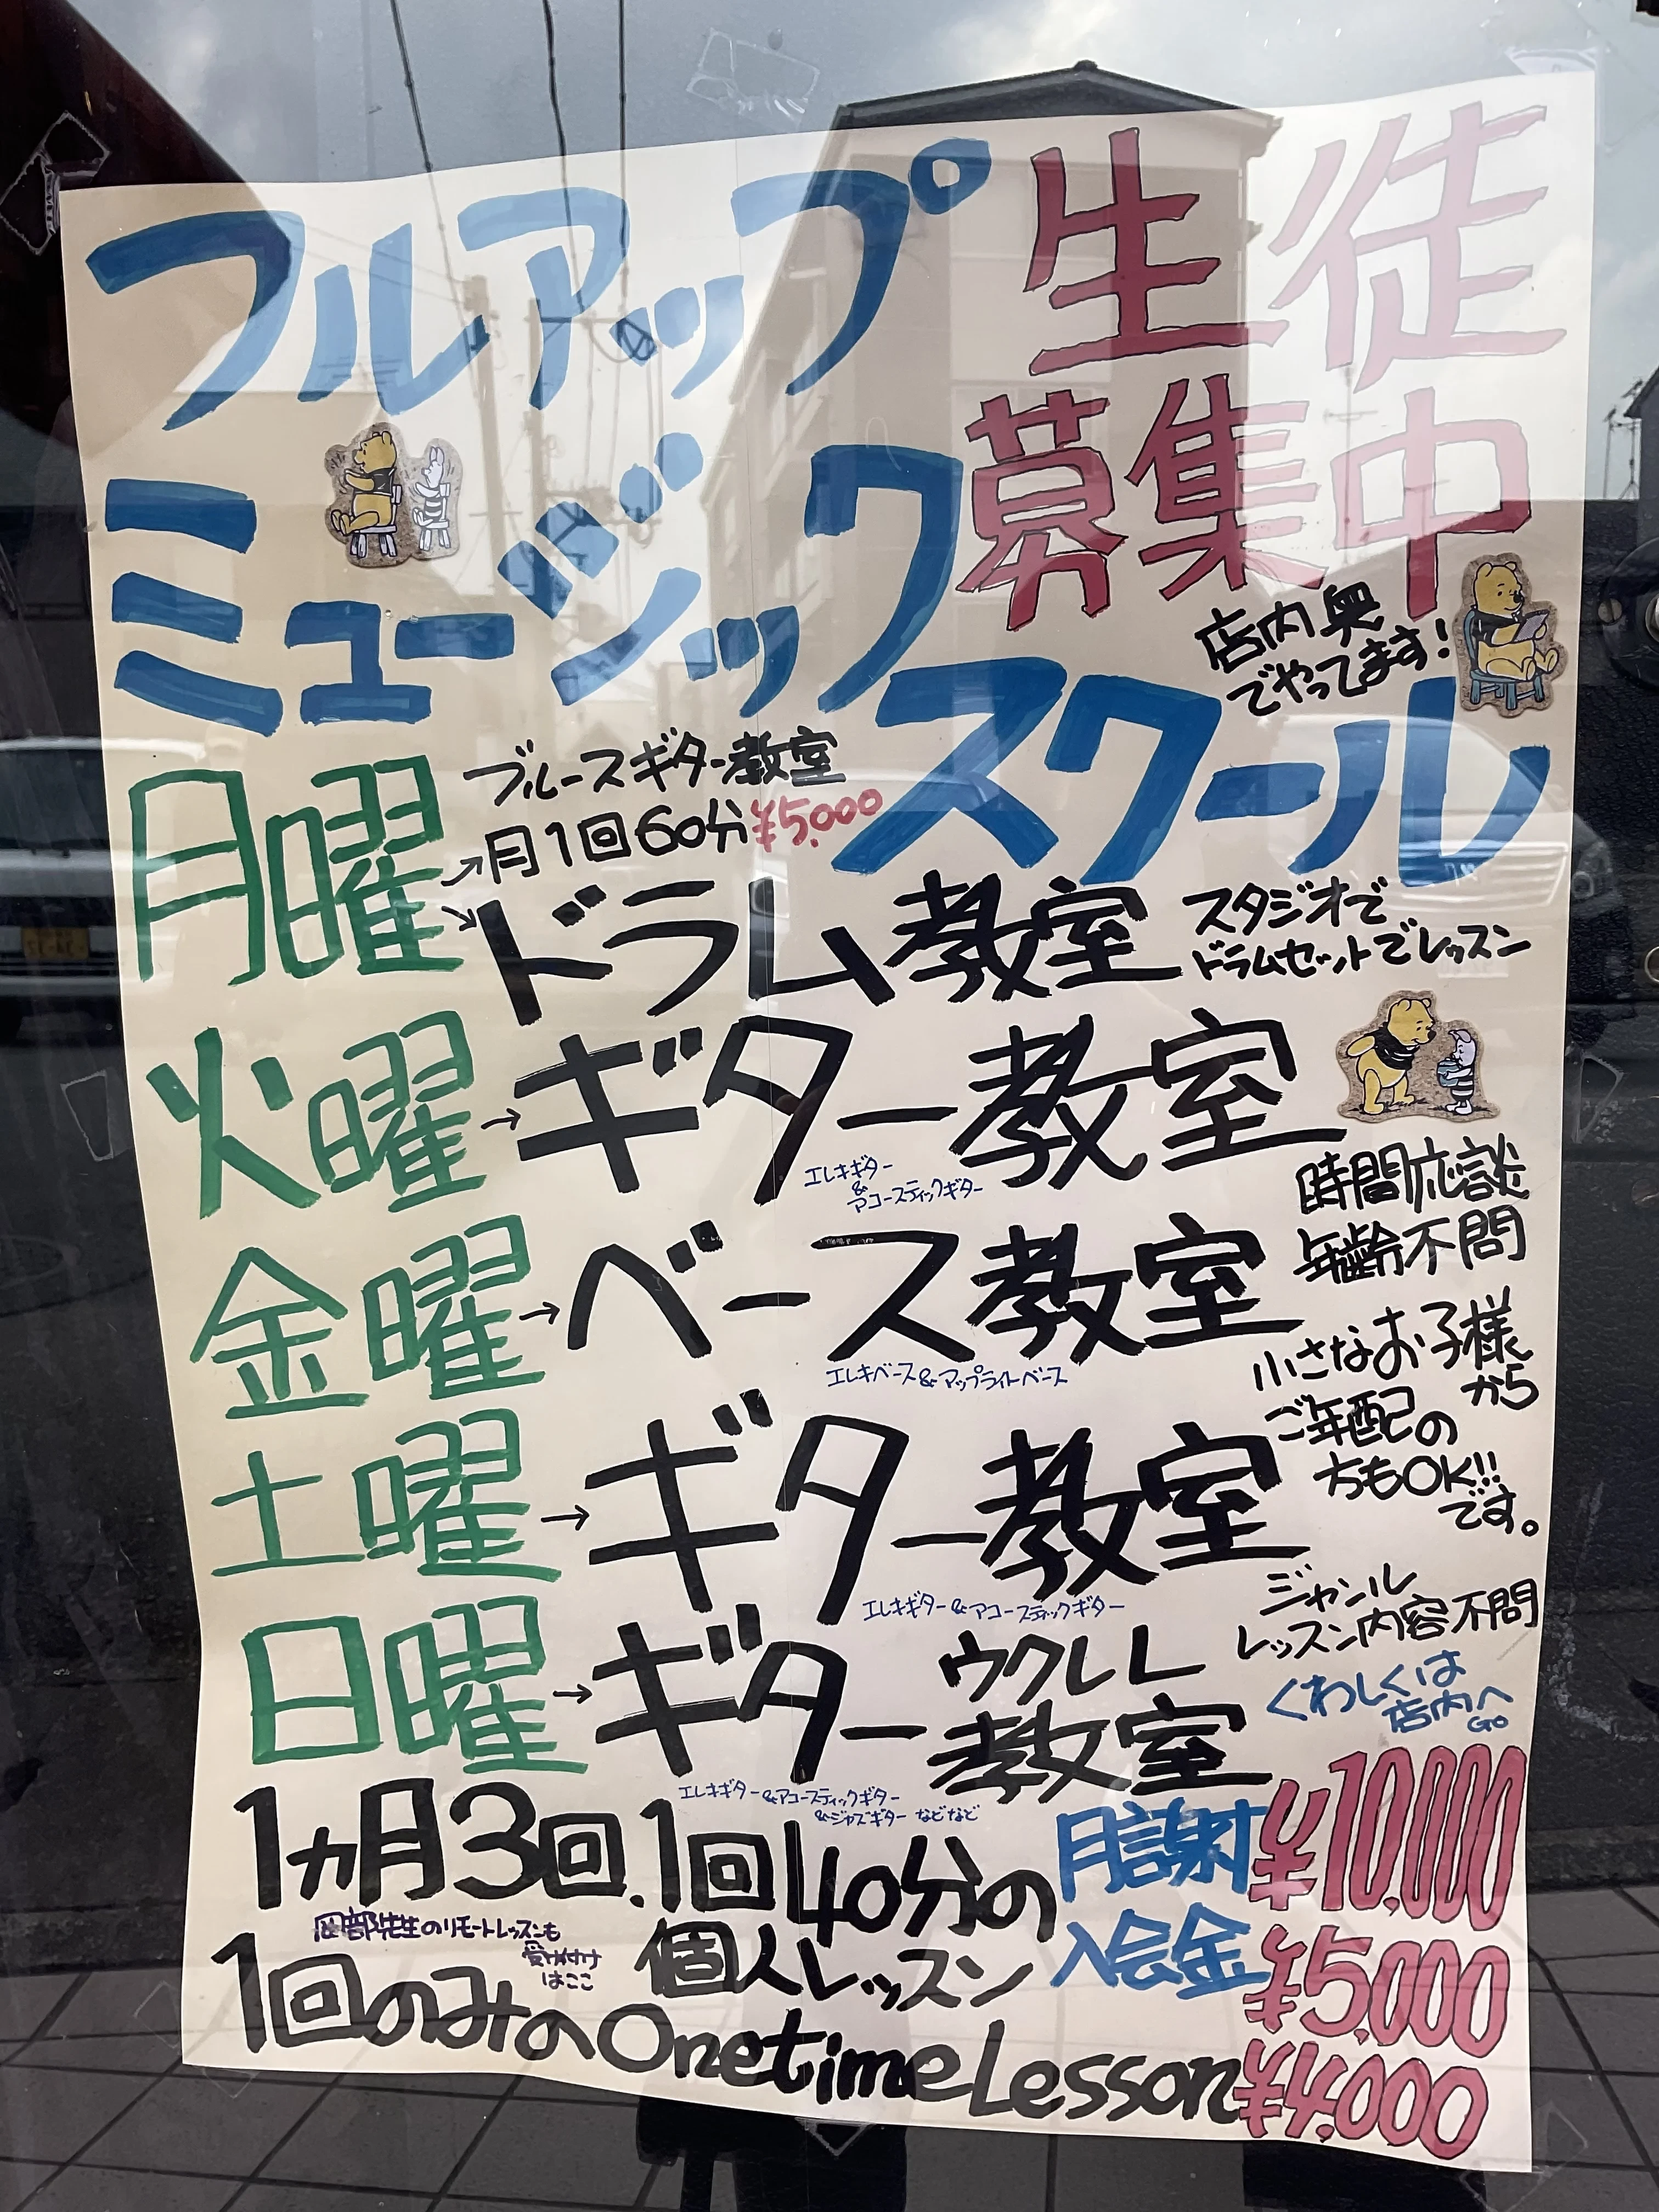 フルアップ
生徒
募集中
ミュージック
スクール
店内奥
でやってます!
月曜
ブルースギター教室
→月1回60分¥5.000
→ドラム教室
スタジオで
ドラムセットでレッスン
火曜→ギター教室
エレキギター
&
アコースティックギター
時間応談
年齢不問
金曜→ベース教室
エレキベース&アップライトベース
小さなお子様
から
ご年配の
方もOK!!
です。
土曜→ギター教室
エレキギター&アコースティックギター
ジャンル
レッスン内容不問
日曜→ギター
ウクレレ
教室
エレキギター&アコースティックギター
&ジャズギター などなど
くわしくは
店内へ
GO
1ヵ月3回.1回40分の
個人レッスン
月謝¥10.000
入会金¥5.000
岡部先生のリモートレッスンも
受け付け
はここ
1回のみのOnetime Lesson